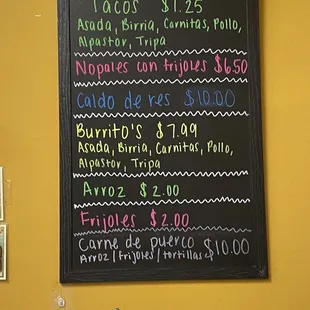 Tacos $1.25
Asada, Birria, Carnitas, Pollo,
Alpastor, Tripa
Nopales con frijoles $6.50
Caldo de res $10.00
Burrito's $7.99
Asada, Birria, Carnitas, Pollo,
Alpastor, Tripa
Arroz $2.00
Frijoles $2.00
Carne de puerco $10.00
Arroz/frijoles/tortillas